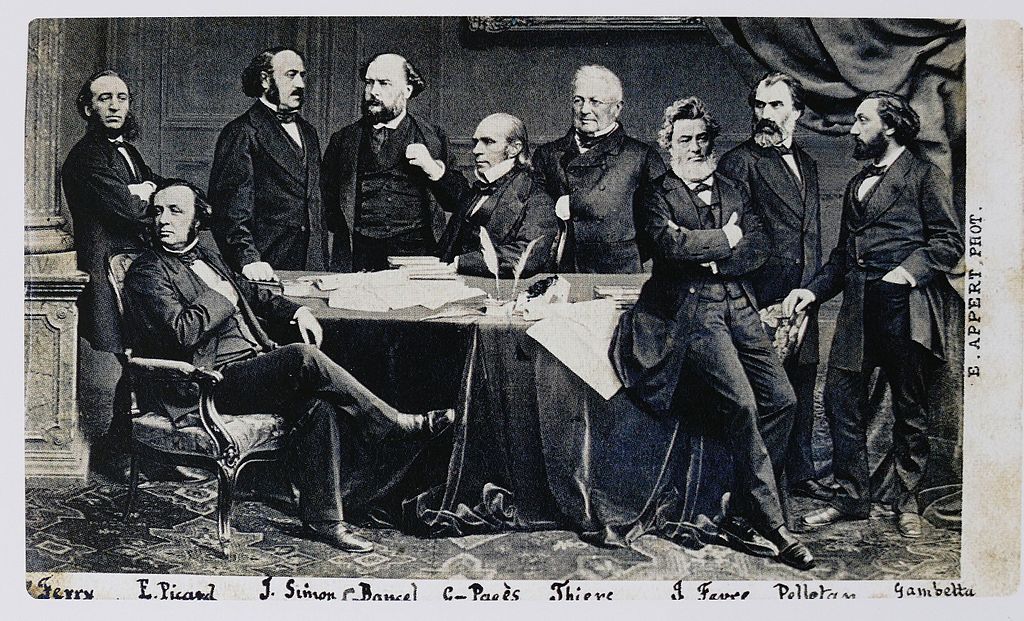 E. APPERT PHOT.
Ferry E. Picard J. Simon Bancel G-Pagès Thiers J. Favre Pelletan Gambetta